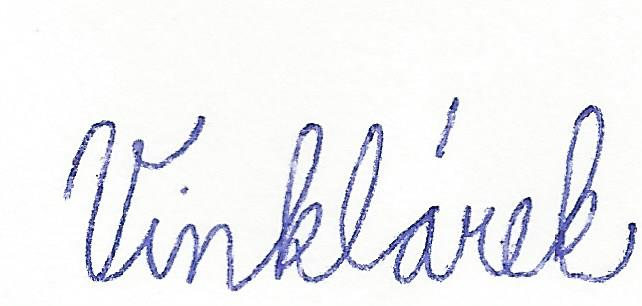 Vinklárek